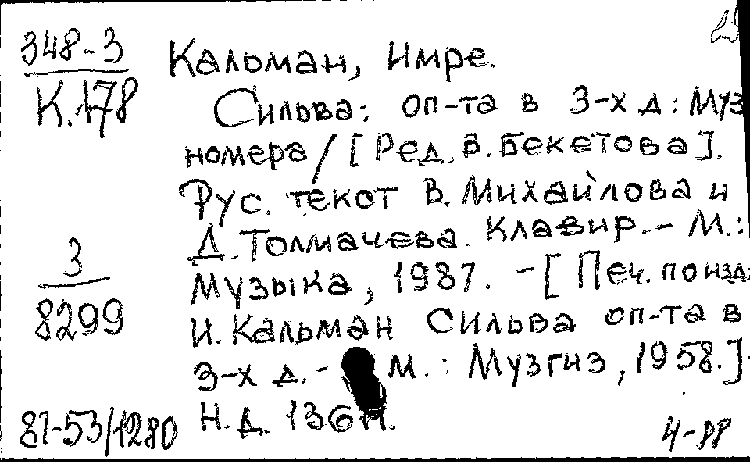 348-3
К.178
Кальман, Имре.
Сильва: оп-та в 3-х д: Муз
номера / [Ред. В. Бекетова].
Рус. текст В. Михайлова и
Д. Толмачева. Клавир. - М.:
Музыка, 1987. - [Печ. по изд:
И. Кальман Сильва оп-та в
3-х д. - М.: Музгиз, 1958.]
Н.д.
3
8299
87-53/1280
4-88